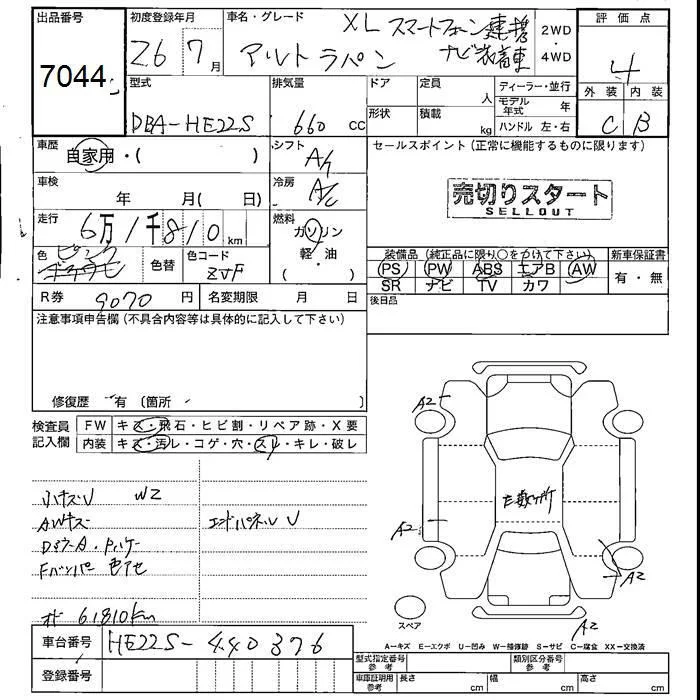 出品番号
7044
初度登録年月
26 7月
車名・グレード
XL スマートフォン連携
アルトラパン ナビ装着車
2WD
4WD
評価点
4
外装 内装
C B
型式
DBA-HE22S
排気量
660 cc
ドア
定員
人
形状
積載
kg
ディーラー・並行
モデル年式 年
ハンドル 左・右
車歴
自家用・( )
シフト
A/T
セールスポイント(正常に機能するものに限ります)
売切りスタート
SELLOUT
車検
年 月( 日)
冷房
A/C
走行
6万1千810km
燃料
ガソリン
軽・油
( )
色
ピンク
色替
色コード
ZVF
装備品(純正品に限り〇をつけて下さい)
PS PW ABS エアB AW
SR ナビ TV カワ
新車保証書
有・無
R券
9070円
名変期限 月 日
後日品
注意事項申告欄(不具合内容等は具体的に記入して下さい)
修復歴 有(箇所 )
検査員
記入欄
FW キズ・飛石・ヒビ割・リペア跡・X要
内装 キズ・汚レ・コゲ・穴・スレ・キレ・破レ
小キズU W2
AWキズ
エンドパネルU
Fバンパー 色アセ
オド 61810km
A2
A2
A2
A2
スペア
A-キズ E-エクボ U-凹み W-補修跡 S-サビ C-腐食 XX-交換済
車台番号
HE22S-440376
登録番号
型式指定番号
参考
類別区分番号
参考
車庫証明用
参考
長さ cm
幅 cm
高さ cm